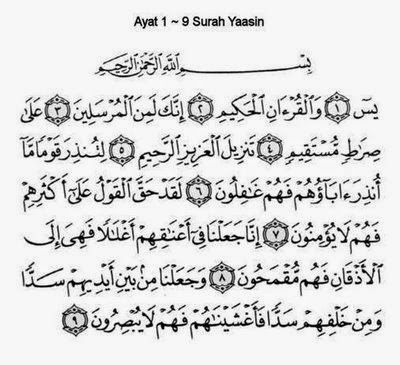 Ayat 1 ~ 9 Surah Yaasin
بِسْمِ اللَّهِ الرَّحْمَٰنِ الرَّحِيمِ
يسٓ ١ وَالْقُرْءَانِ الْحَكِيمِ ٢ إِنَّكَ لَمِنَ الْمُرْسَلِينَ ٣ عَلَىٰ
صِرَاطٍ مُّسْتَقِيمٍ ٤ تَنزِيلَ الْعَزِيزِ الرَّحِيمِ ٥ لِتُنذِرَ قَوْمًا مَّا
أُنذِرَ ءَابَاؤُهُمْ فَهُمْ غَافِلُونَ ٦ لَقَدْ حَقَّ الْقَوْلُ عَلَىٰ أَكْثَرِهِمْ
فَهُمْ لَا يُؤْمِنُونَ ٧ إِنَّا جَعَلْنَا فِي أَعْنَاقِهِمْ أَغْلَالًا فَهِيَ إِلَى
الْأَذْقَانِ فَهُم مُّقْمَحُونَ ٨ وَجَعَلْنَا مِنۢ بَيْنِ أَيْدِيهِمْ سَدًّا
وَمِنْ خَلْفِهِمْ سَدًّا فَأَغْشَيْنَاهُمْ فَهُمْ لَا يُبْصِرُونَ ٩